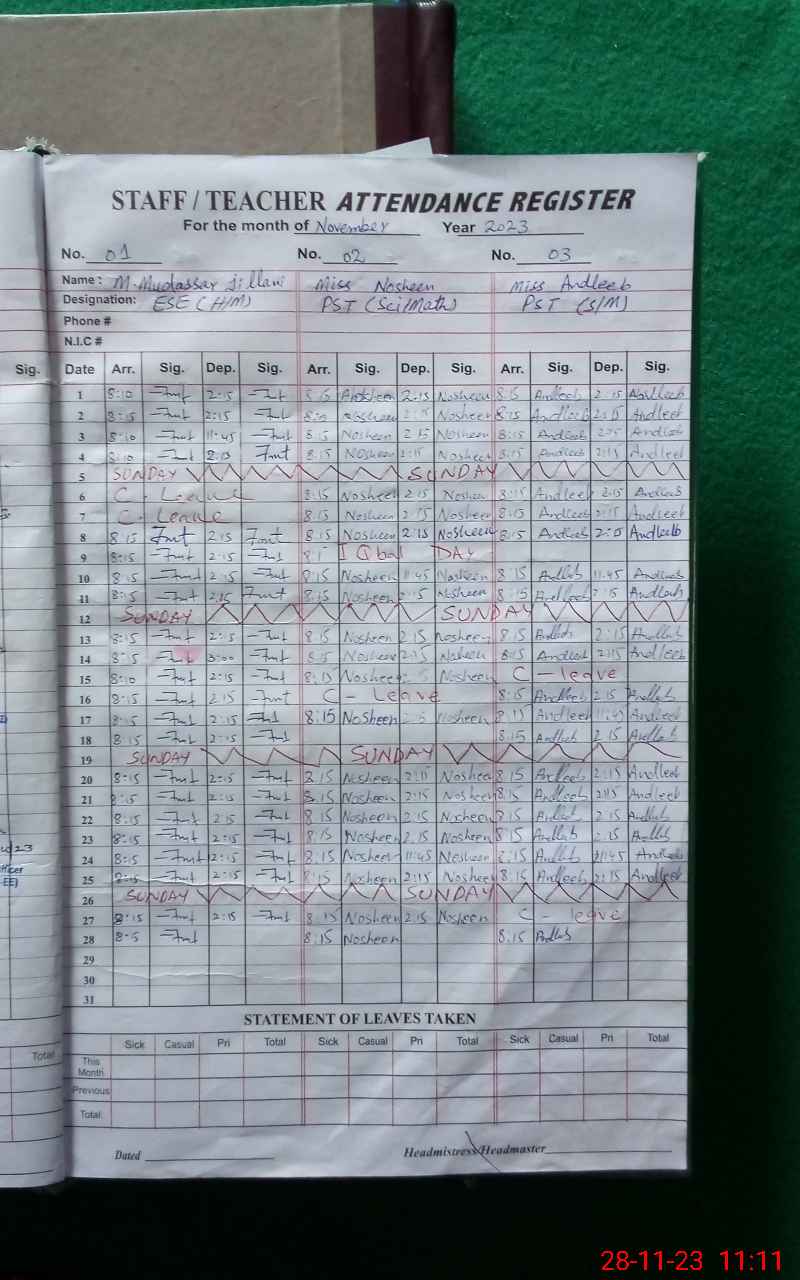 STAFF / TEACHER ATTENDANCE REGISTER
For the month of November Year 2023
No. 01 No. 02 No. 03
Name: M. Mudassar Jillani Miss Nosheen Miss Andleeb
Designation: ESE (H/M) PST (Sci/Math) PST (S/M)
Phone #
N.I.C #
Sig. Date Arr. Sig. Dep. Sig. Arr. Sig. Dep. Sig. Arr. Sig. Dep. Sig.
1 8:10 2:15 Nosheen 2:15 Nosheen 8:15 Andleeb 2:15 Andleeb
2 8:15 2:15 Nosheen 8:15 Andleeb 2:15 Andleeb
3 8:10 11:45 8:15 Nosheen 2:15 Nosheen 8:15 Andleeb Andleeb
4 8:10 2:15 8:15 Nosheen 2:15 Nosheen 8:15 Andleeb 2:15 Andleeb
5 SUNDAY SUNDAY
6 C. Leave 8:15 Nosheen 2:15 Nosheen 8:15 Andleeb 2:15 Andleeb
7 C. Leave 8:15 Nosheen 2:15 Nosheen 8:15 Andleeb 2:15 Andleeb
8 8:15 2:15 8:15 Nosheen 2:15 Nosheen 8:15 Andleeb 2:15 Andleeb
9 8:15 2:15 IQbal DAY
10 8:15 2:15 8:15 Nosheen 11:45 Nosheen 8:15 Andleeb 11:45 Andleeb
11 8:15 2:15 8:15 Nosheen 2:15 Nosheen 8:15 Andleeb 2:15 Andleeb
12 SUNDAY SUNDAY
13 8:15 2:15 8:15 Nosheen 2:15 Nosheen 8:15 Andleeb 2:15 Andleeb
14 8:15 3:00 8:15 Nosheen 2:15 Nosheen 8:15 Andleeb 2:15 Andleeb
15 8:10 2:15 8:15 Nosheen Nosheen C - leave
16 8:15 2:15 C - Leave 8:15 Andleeb 2:15 Andleeb
17 8:15 2:15 8:15 Nosheen Nosheen 8:15 Andleeb 11:45 Andleeb
18 8:15 2:15 8:15 Andleeb 2:15 Andleeb
19 SUNDAY SUNDAY
20 8:15 2:15 8:15 Nosheen 2:15 Nosheen 8:15 Andleeb 2:15 Andleeb
21 8:15 2:15 8:15 Nosheen 2:15 Nosheen 8:15 Andleeb 2:15 Andleeb
22 8:15 2:15 8:15 Nosheen 2:15 Nosheen 8:15 Andleeb 2:15 Andleeb
23 8:15 2:15 8:15 Nosheen 2:15 Nosheen 8:15 Andleeb 2:15 Andleeb
24 8:15 2:15 8:15 Nosheen 11:45 Nosheen 8:15 Andleeb 11:45 Andleeb
25 8:15 2:15 8:15 Nosheen 2:15 Nosheen 8:15 Andleeb 2:15 Andleeb
26 SUNDAY SUNDAY
27 8:15 2:15 8:15 Nosheen 2:15 Nosheen C - leave
28 8:15 8:15 Nosheen 8:15 Andleeb
29
30
31
STATEMENT OF LEAVES TAKEN
Sick Casual Pri Total Sick Casual Pri Total Sick Casual Pri Total
Total This Month
Previous
Total:
Dated Headmistress/Headmaster
28-11-23 11:11